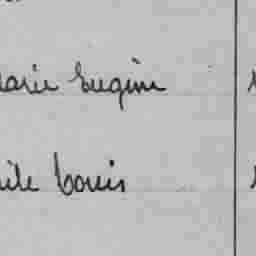 Marie Eugène
ile Louis